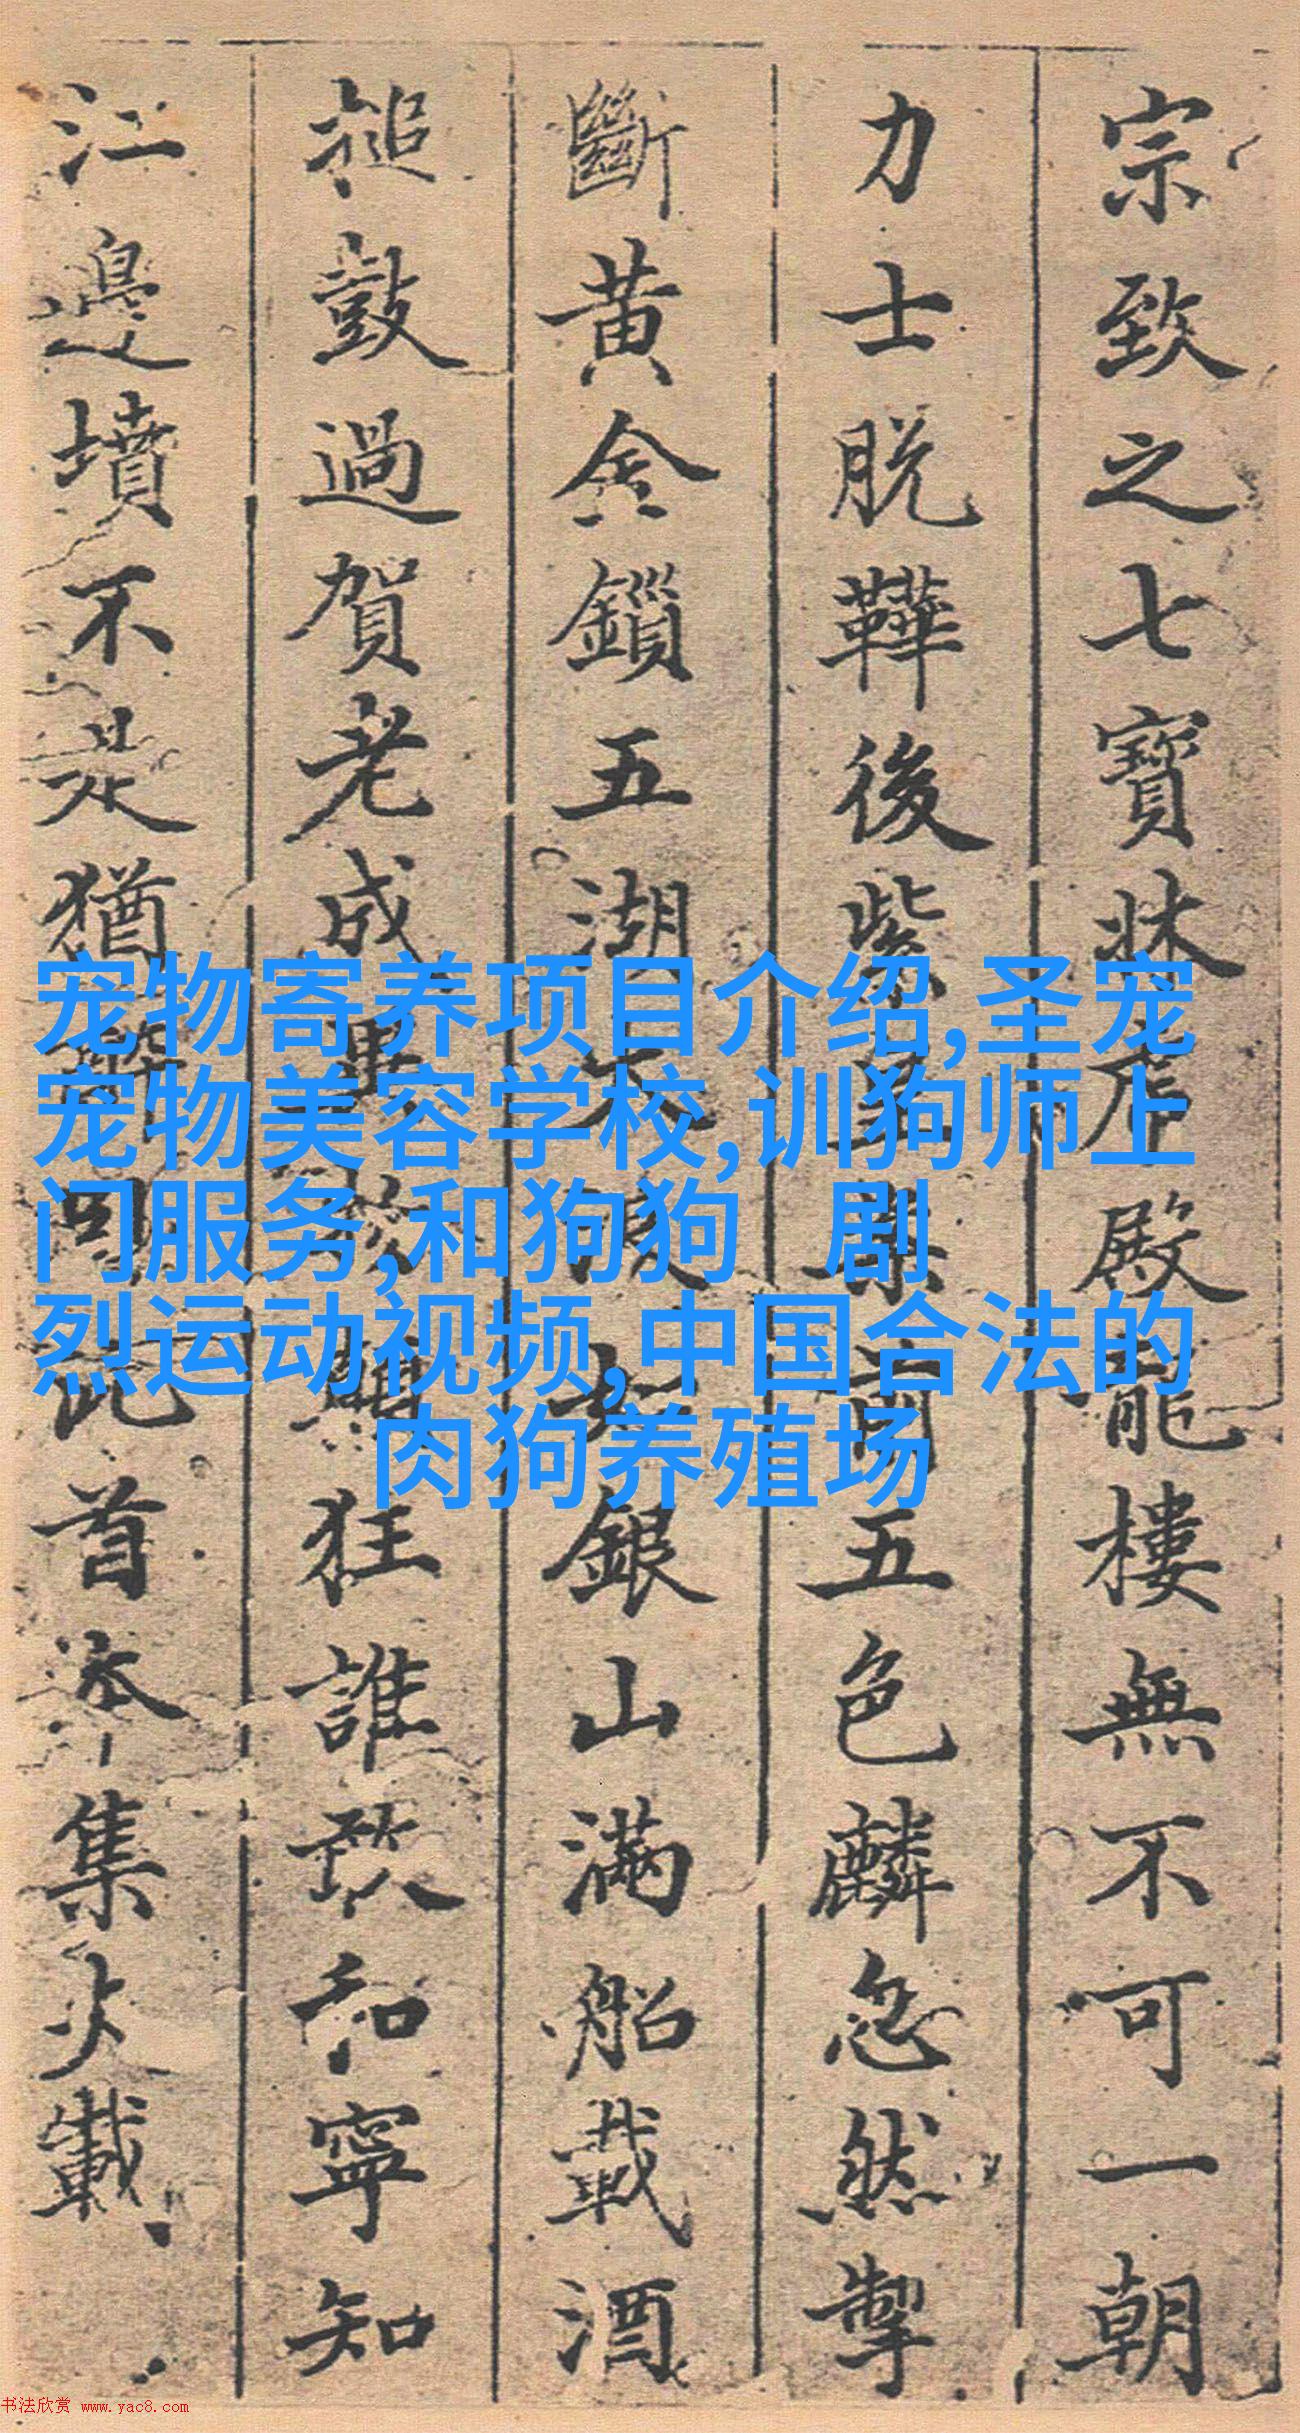 宗致之七寶牀虎殿龍樓無不可一朝
力士脱鞾後紫皇案前五色麟忽然掣
斷黄金鎖五湖大浪如銀山滿船載酒
搥鼓過賀老成異物狂誰敢和寧知
江邊墳不是猶醉此首本集失載
宠物寄养项目介绍,圣宠
宠物美容学校,训狗师上
门服务,和狗狗 剧
烈运动视频,中国合法的
肉狗养殖场
书法欣赏 www.yac8.com